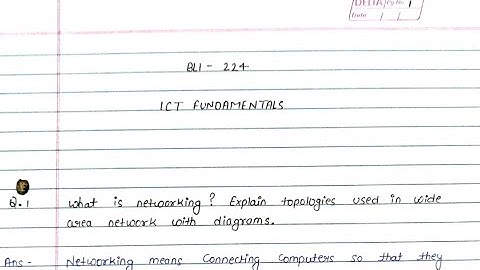 DELTA Pg No. 1
Date / /
BLI - 224
ICT FUNDAMENTALS
Q.1 What is networking? Explain topologies used in wide
area network with diagrams.
Ans - Networking means Connecting Computers so that they